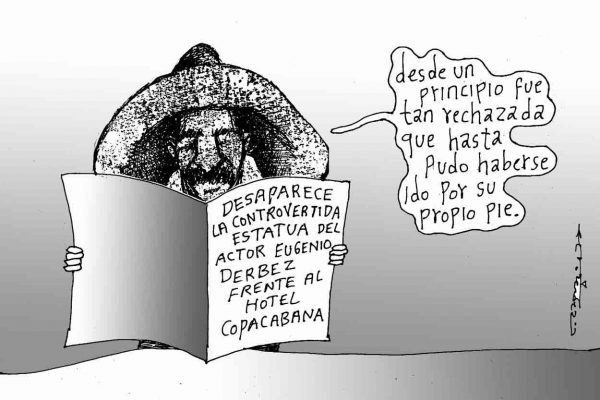 DESAPARECE
LA CONTROVERTIDA
ESTATUA DEL
ACTOR EUGENIO
DERBEZ
FRENTE AL
HOTEL
COPACABANA
desde un
principio fue
tan rechazada
que hasta
Pudo haberse
ido por su
propio pie.